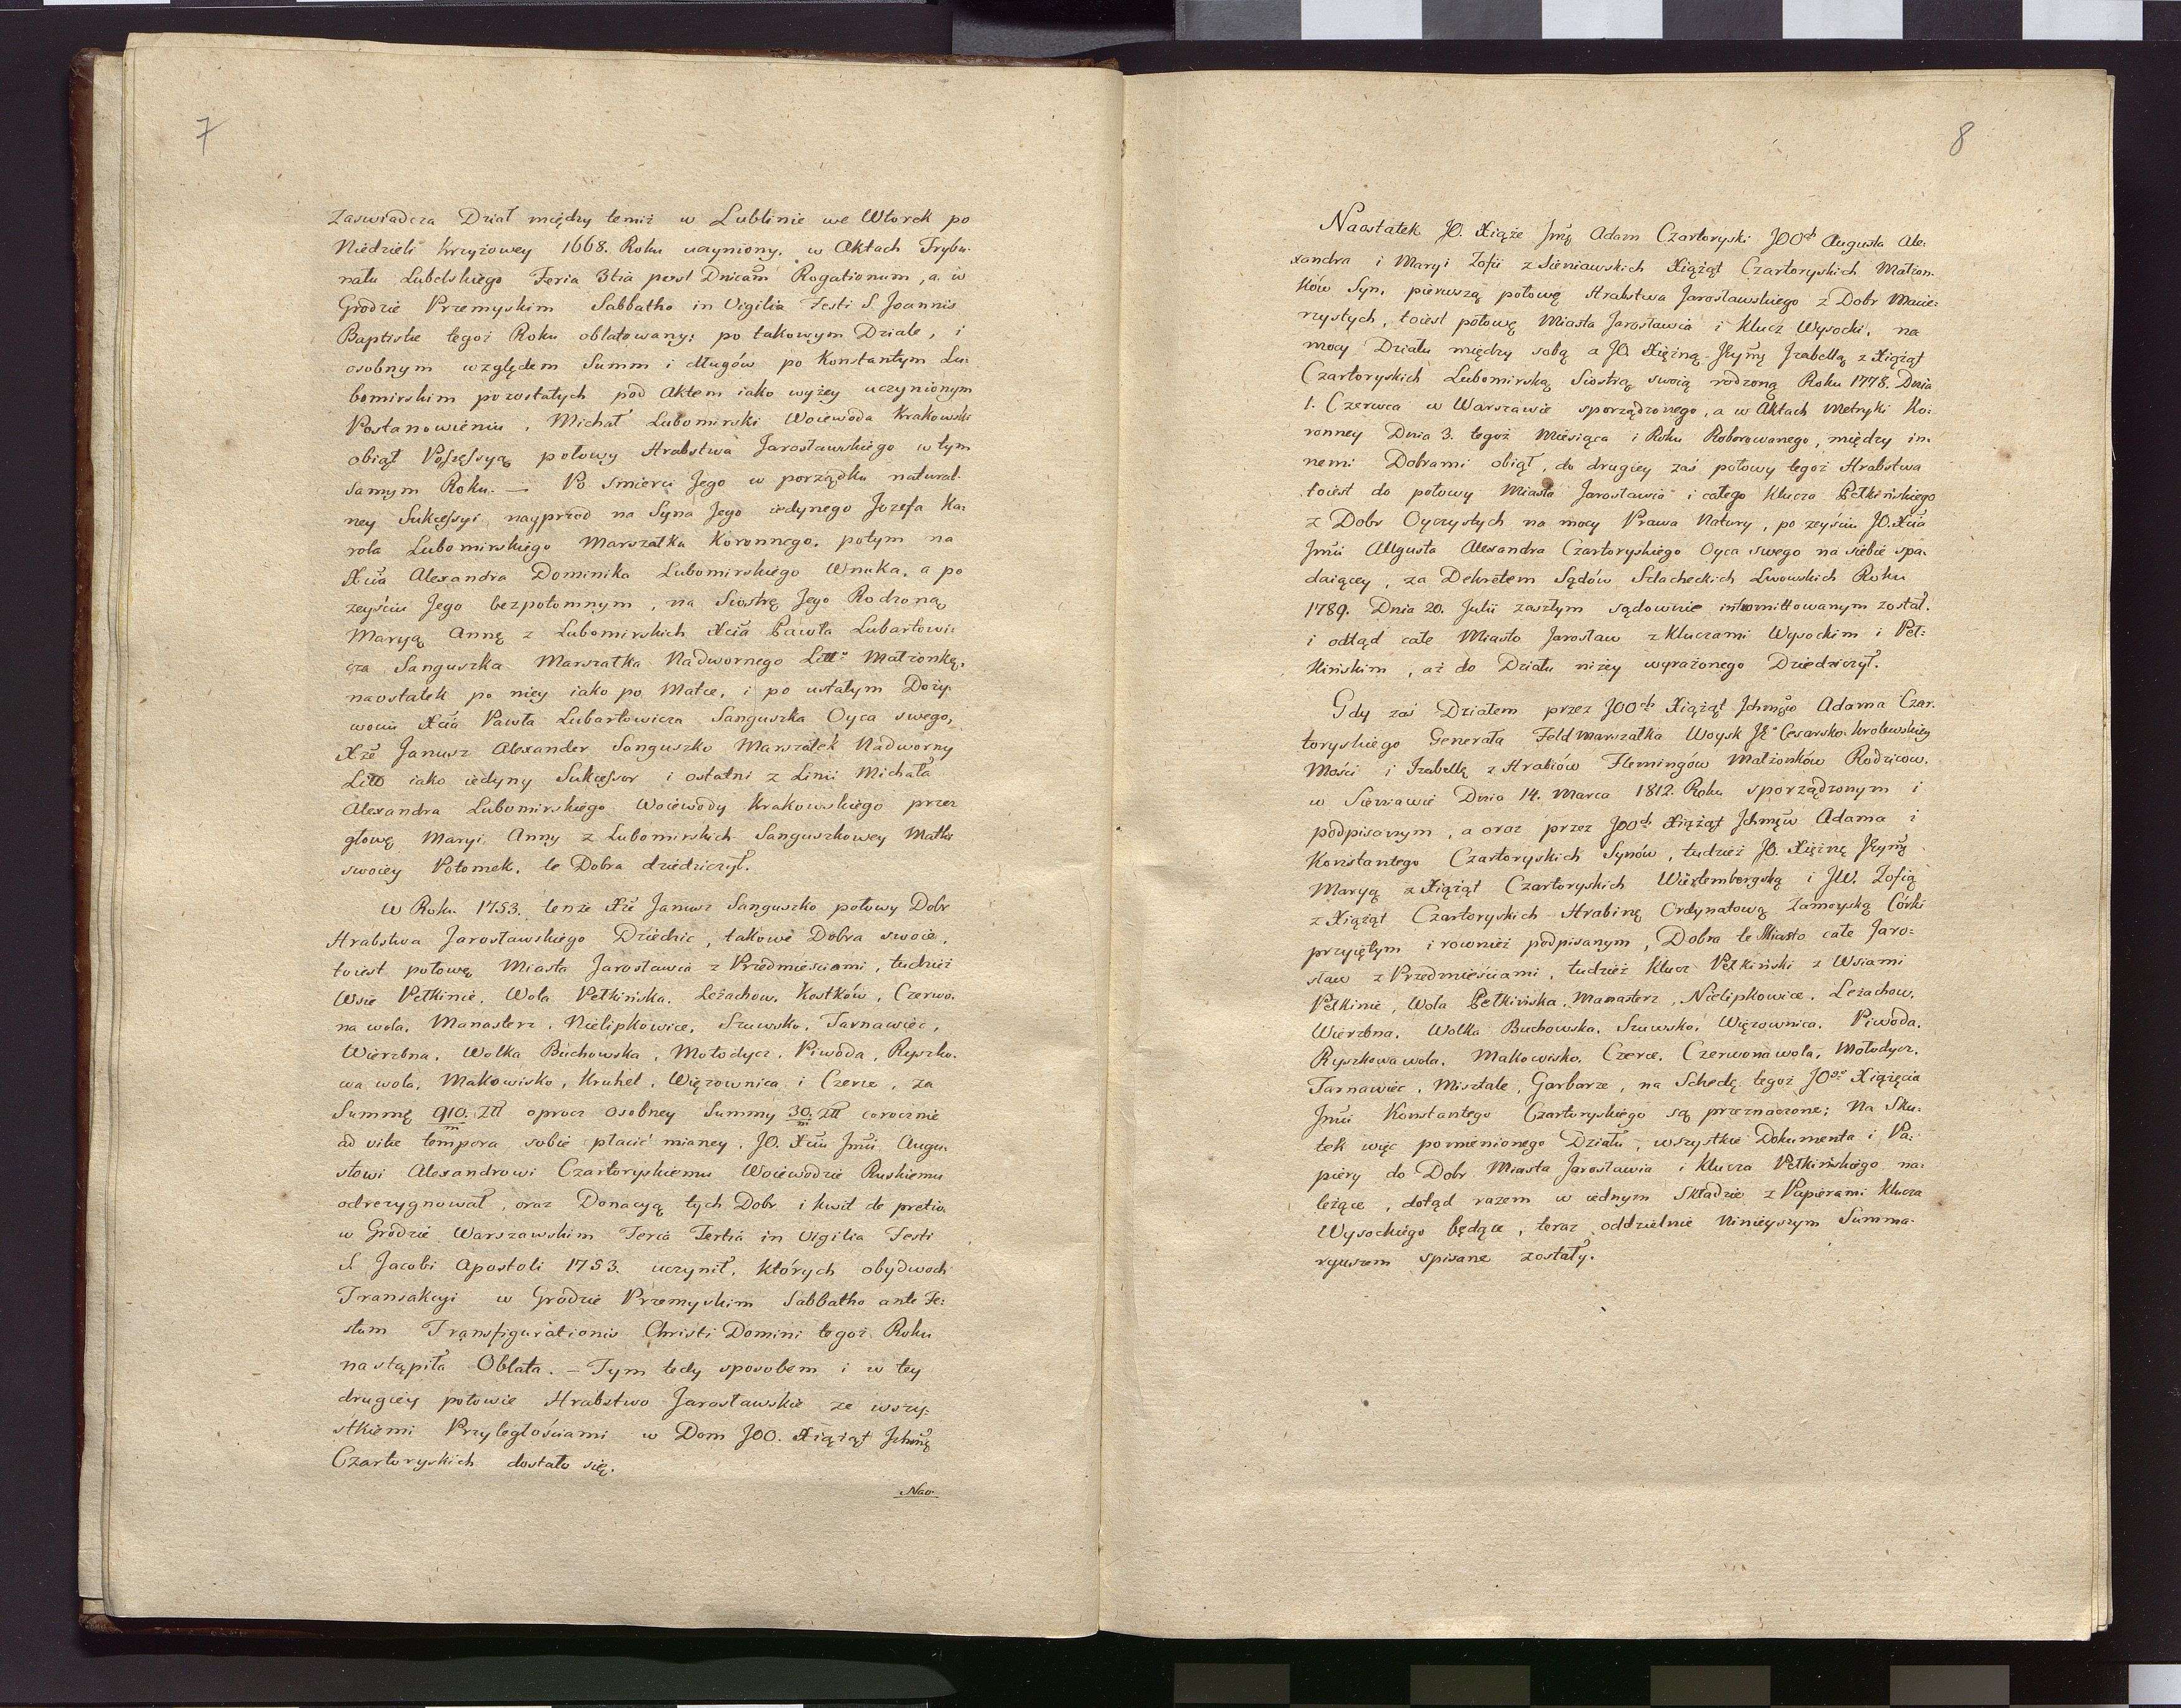 7
Zaswiadcza Dział między temiż w Lublinie we Wtorek po
Niedzieli Krzyżowey 1668. Roku uczyniony, w Aktach Trybu-
nału Lubelskiego Feria 3tia post Dnicam Rogationum, a w
Grodzie Przemyskim Sabbatho in Vigilia Festi S. Joannis
Baptistæ tegoż Roku oblatowany: po takowym Dziale, i
osobnym względem Summ i długów po Konstantym Lu-
bomirskim pozostałych pod Aktem iako wyżey uczynionym
Postanowieniu, Michał Lubomirski Woiewoda Krakowski
obiął Possessyą połowy Hrabstwa Jarosławskiego w tym
samym Roku. — Po smierci Jego w porządku natural-
ney Sukcessyi, nayprzod na Syna Jego iedynego Jozefa Ka-
rola Lubomirskiego Marszałka Koronnego, potym na
Xcia Alexandra Dominika Lubomirskiego Wnuka, a po
zeyściu Jego bezpotomnym, na Siostrę Jego Rodzoną
Maryą Annę z Lubomirskich Xcia Pawła Lubartowi-
cza Sanguszka Marszałka Nadwornego Litt° Małżonkę,
naostatek po niey iako po Matce, i po ustałym Doży-
wociu Xcia Pawła Lubartowicza Sanguszka Oyca swego,
Xże Janusz Alexander Sanguszko Marszałek Nadworny
Litto iako iedyny Sukcessor i ostatni z Linii Michała
Alexandra Lubomirskiego Woiewody Krakowskiego przez
głowę Maryi Anny z Lubomirskich Sanguszkowey Matki
swoiey Potomek, te Dobra dziedziczył.
W Roku 1753. tenże Xże Janusz Sanguszko połowy Dobr
Hrabstwa Jarosławskiego Dziedzic, takowe Dobra swoie,
toiest połowę Miasta Jarosławia z Przedmieściami, tudzież
Wsie Pełkinie, Wola Pełkińska, Leżachow, Kostków, Czerwo-
na wola, Manasterz, Nielipkowice, Szuwsko, Tarnawiec,
Wierzbna, Wolka Buchowska, Mołodycz, Piwoda, Ryszko-
wa wola, Makowisko, Kruhel, Więzownica i Czerce, za
Summę 910/m Złł oprocz osobney Summy 30/m złł corocznie
ad vitæ tempora sobie płacić mianey, JO. Xciu Jmci Augu-
stowi Alexandrowi Czartoryskiemu Woiewodzie Ruskiemu
odrezygnował, oraz Donacyą tych Dobr i kwit de pretio
w Grodzie Warszawskim Feria Tertia in Vigilia Festi
S. Jacobi Apostoli 1753. uczynił, których obydwoch
Transakcyi w Grodzie Przemyskim Sabbatho ante Fe-
stum Transfigurationis Christi Domini tegoż Roku
nastąpiła Oblata. — Tym tedy sposobem i w tey
drugiey połowie Hrabstwo Jarosławskie ze wszy-
stkiemi Przyległościami w Dom JOO. Xiążąt Jchmę
Czartoryskich dostało się.
Nao
8
Naostatek JO. Xiąże Jmę Adam Czartoryski JOOch Augusta Ale-
xandra i Maryi Zofii z Sieniawskich Xiążąt Czartoryskich Małżon-
ków Syn, pierwszą połowę Hrabstwa Jarosławskiego z Dobr Macie-
rzystych, toiest połowę Miasta Jarosławia i Klucz Wysocki, na
mocy Działu między sobą a JO. Xiężną Jeymę Izabellą z Xiążąt
Czartoryskich Lubomirską Siostrą swoią rodzoną Roku 1778. Dnia
1. Czerwca w Warszawie sporządzonego, a w Aktach Metryki Ko-
ronney Dnia 3. tegoż Miesiąca i Roku Roborowanego, między in-
nemi Dobrami obiął, do drugiey zaś połowy tegoż Hrabstwa
toiest do połowy Miasta Jarosławia i całego Klucza Pełkińskiego
z Dobr Oyczystych na mocy Prawa Natury, po zeyściu JO. Xcia
Jmci Augusta Alexandra Czartoryskiego Oyca swego na siebie spa-
daiącey, za Dekretem Sądów Szlacheckich Lwowskich Roku
1789. Dnia 20. Julii zaszłym sądownie intromittowanym został.
i odtąd całe Miasto Jarosław z Kluczami Wysockim i Peł-
kińskim, aż do Działu niżey wyrażonego Dziedziczył.
Gdy zaś Działem przez JOOch Xiążąt Jchmęw Adama Czar-
toryskiego Generała Feldmarszałka Woysk Je° Cesarsko-Krolewskiey
Mości i Izabellę z Hrabiów Flemingów Małżonków Rodzicow.
w Sieniawie Dnia 14. Marca 1812. Roku sporządzonym i
podpisanym, a oraz przez JOOch Xiążąt Jchmęw Adama i
Konstantego Czartoryskich Synów, tudzież JO. Xiężnę Jeymę
Maryą z Xiążąt Czartoryskich Wirtembergską i JW. Zofią
z Xiążąt Czartoryskich Hrabinę Ordynatową Zamoyską Córki
przyiętym i rownież podpisanym, Dobra te Miasto całe Jaro-
sław z Przedmieściami, tudzież Klucz Pełkiński z Wsiami
Pełkinie, Wola Pełkińska, Manasterz, Nielipkowice, Leżachow,
Wierzbna, Wolka Buchowska, Szuwsko, Więzownica, Piwoda,
Ryszkowa wola, Makowisko, Czerce, Czerwona wola, Mołodycz,
Tarnawiec, Misztale, Garbarze, na Schedę tegoż JOgo Xiążęcia
Jmci Konstantego Czartoryskiego są przeznaczone; Na Sku-
tek więc pomienionego Działu, wszystkie Dokumenta i Pa-
piery do Dobr Miasta Jarosławia i Klucza Pełkińskiego na-
leżące, dotąd razem w iednym Składzie z Papierami Klucza
Wysockiego będące, teraz oddzielnie Ninieyszym Summa-
ryuszem spisane zostały.